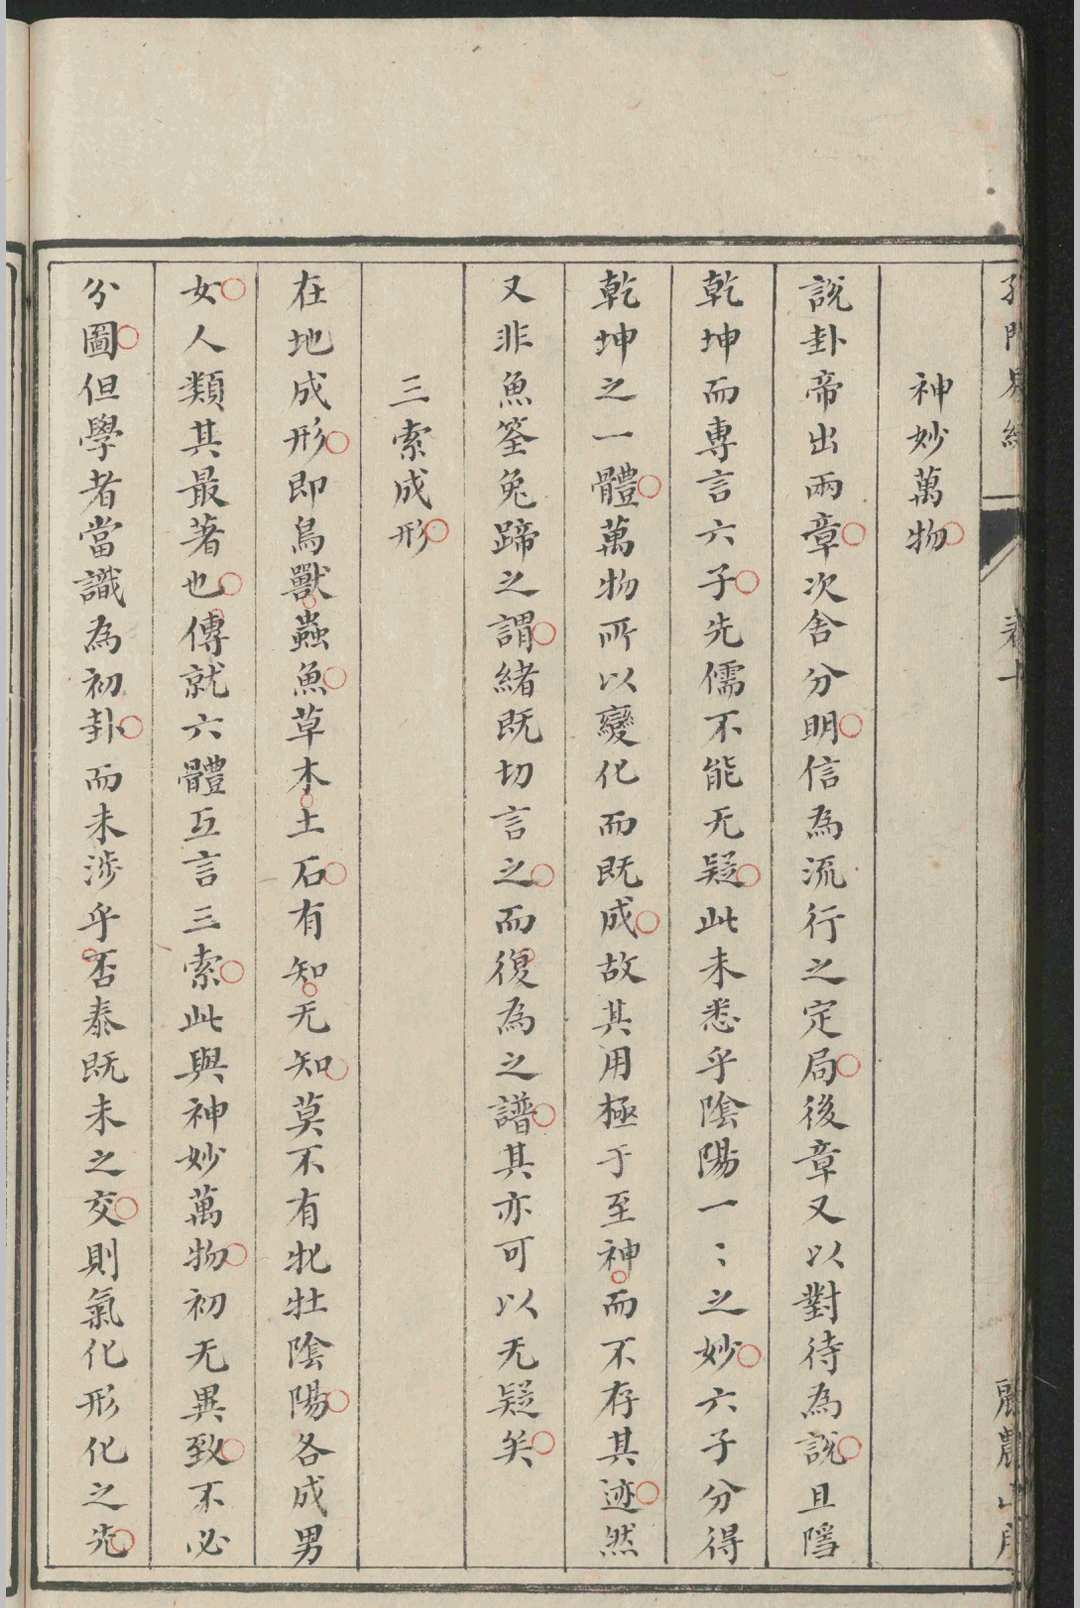 神妙萬物
說卦帝出兩章次舍分明信為流行之定局後章又以對待為說且隱
乾坤而專言六子先儒不能无疑此未悉乎陰陽一〻之妙六子分得
乾坤之一體萬物所以變化而既成故其用極于至神而不存其迹然
又非魚筌兔蹄之謂緒既切言之而復為之譜其亦可以无疑矣
三索成形
在地成形即鳥獸蟲魚草木土石有知无知莫不有牝牡陰陽各成男
女人類其最著也傳就六體互言三索此與神妙萬物初无異致不必
分圖但學者當識為初卦而未涉乎否泰既未之交則氣化形化之先